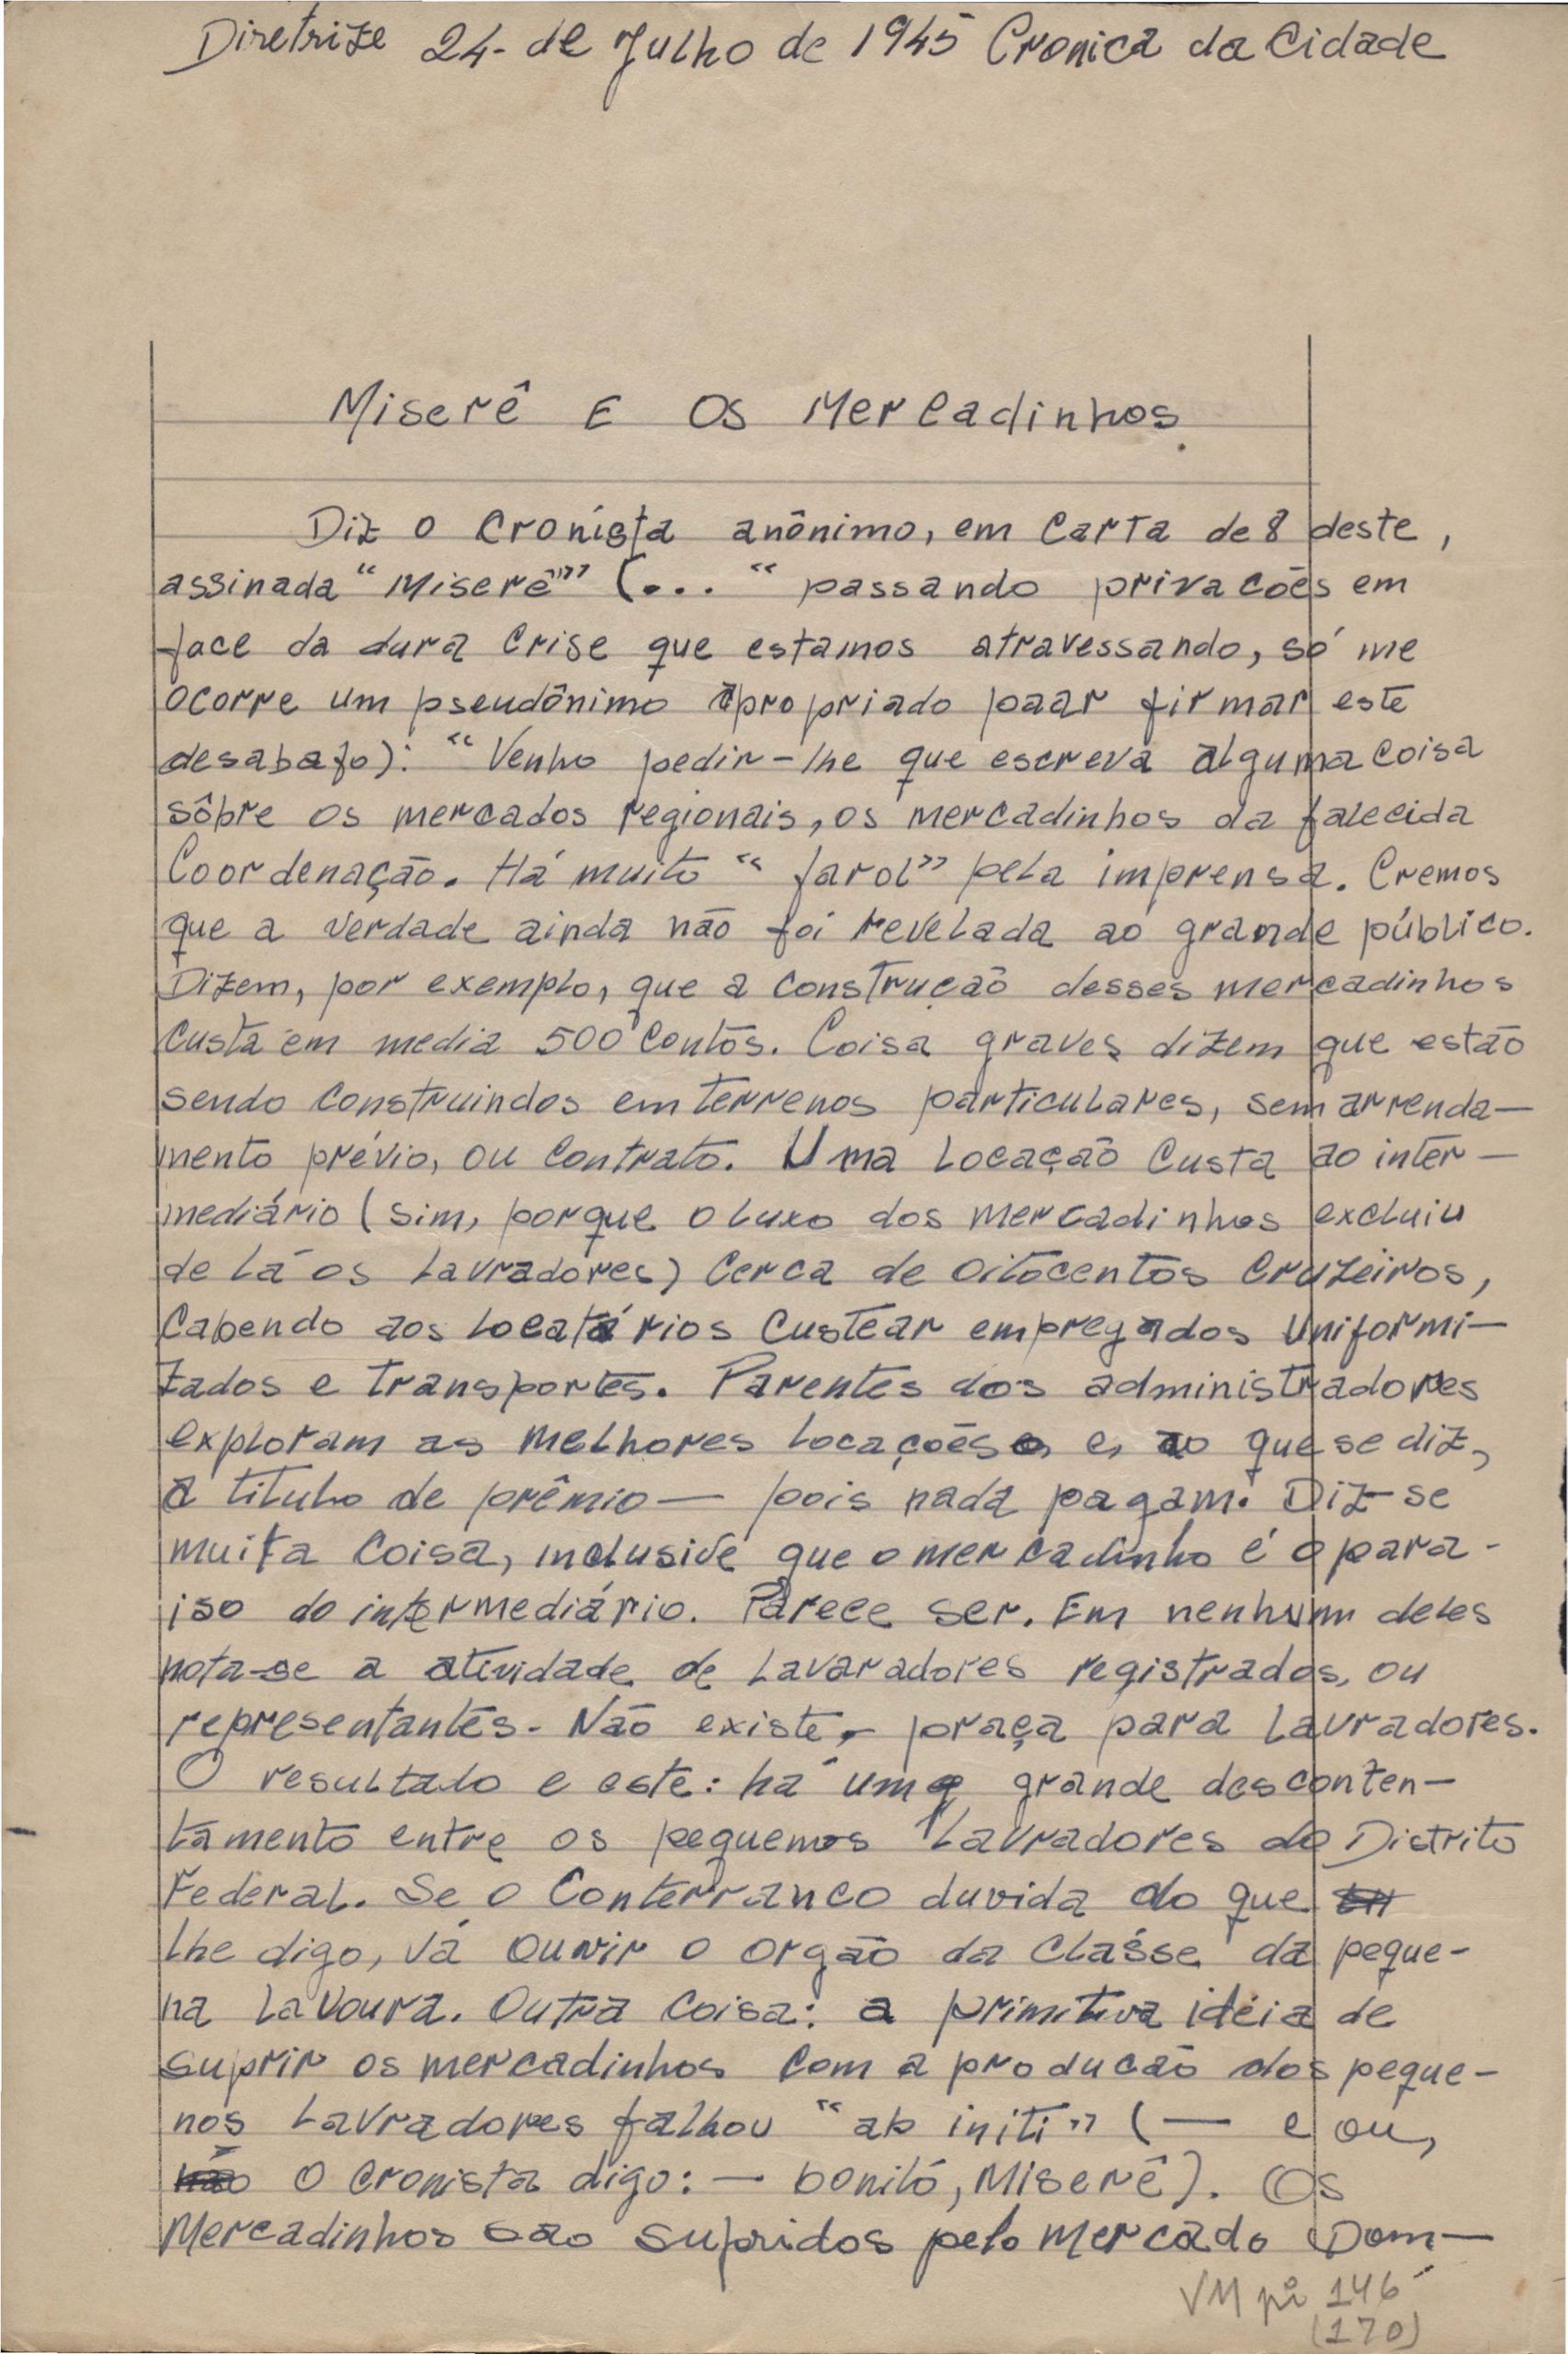 Diretrize 24- de Julho de 1945 Cronica da Cidade
Miserê E Os Mercadinhos.
Diz o cronista anônimo, em carta de 8 deste,
assinada "Miserê"" (... "passando privacões em
face da dura crise que estamos atravessando, só me
ocorre um pseudônimo apropriado paar firmar este
desabafo): "Venho pedir-lhe que escreva alguma coisa
sôbre os mercados regionais, os mercadinhos da falecida
Coordenação. Há muito "farol" pela imprensa. Cremos
que a verdade ainda não foi revelada ao grande público.
Dizem, por exemplo, que a construcão desses mercadinhos
custa em media 500 contos. Coisa graves dizem que estão
sendo construindos em terrenos particulares, sem arrenda-
mento prévio, ou contrato. Uma locação custa ao inter-
mediário (sim, porque o luxo dos mercadinhos excluiu
de lá os lavradores) cerca de oitocentos cruzeiros,
cabendo aos locatários custear empregados uniformi-
zados e transportes. Parentes dos administradores
exploram as melhores locações e, ao que se diz,
a titulo de prêmio — pois nada pagam. Diz-se
muita coisa, inclusive que o mercadinho é o para-
iso do intermediário. Parece ser. Em nenhum deles
nota-se a atividade de lavaradores registrados, ou
representantes. Não existe, praça para lavradores.
O resultado e este: há uma grande desconten-
tamento entre os pequenos lavradores do Distrito
Federal. Se o Conterraneo duvida do que
lhe digo, vá ouvir o orgão da classe da peque-
na lavoura. Outra coisa: a primitiva idéia de
suprir os mercadinhos com a producão dos peque-
nos lavradores falhou "ab initi" (— e ou,
o cronista digo: — bonitó, Miserê). Os
Mercadinhos são supridos pelo mercado Dom-
VM pi 146
(170)